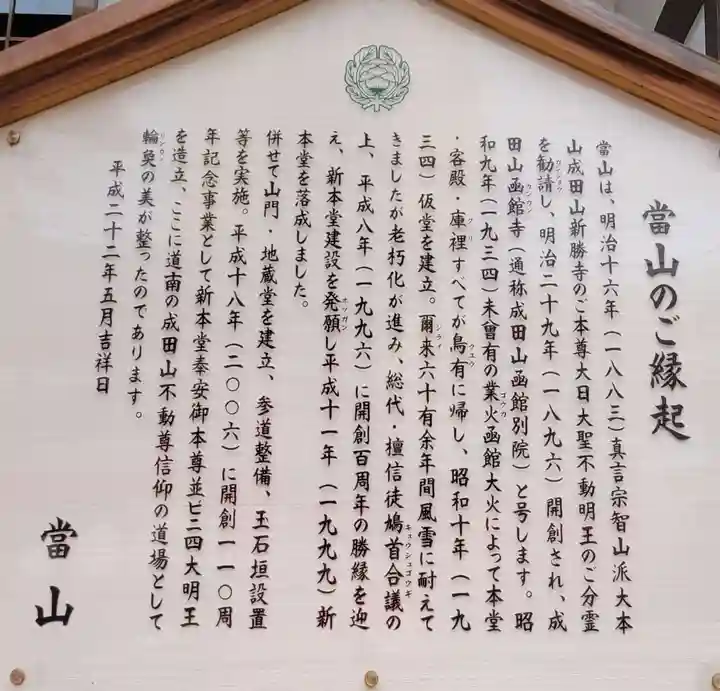 當山のご縁起
當山は、明治十六年(一八八三)真言宗智山派大本
山成田山新勝寺のご本尊大日大聖不動明王のご分霊
を勧請し、明治二十九年(一八九六)開創され、成
田山函館寺(通称成田山函館別院)と号します。昭
和九年(一九三四)未曾有の業火函館大火によって本堂
・客殿・庫裡すべてが烏有に帰し、昭和十年(一九
三四)仮堂を建立。爾来六十有余年間風雪に耐えて
きましたが老朽化が進み、総代・檀信徒鳩首合議の
上、平成八年(一九九六)に開創百周年の勝縁を迎
え、新本堂建設を発願し平成十一年(一九九九)新
本堂を落成しました。
併せて山門・地蔵堂を建立、参道整備、玉石垣設置
等を実施。平成十八年(二〇〇六)に開創一一〇周
年記念事業として新本堂奉安御本尊並ビニ四大明王
を造立、ここに道南の成田山不動尊信仰の道場として
輪奐の美が整ったのであります。
平成二十二年五月吉祥日
當山